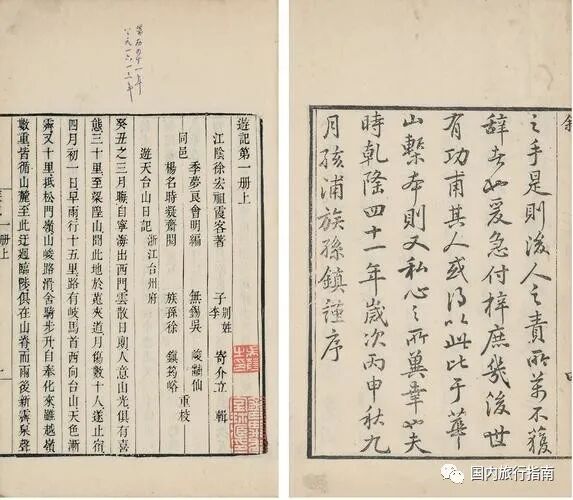 之手是則後人之責所萬不獲
辭者也爰急付梓庶幾後世
有功甫其人或得以此比于華
山槧本則又私心之所冀幸也夫
時乾隆四十一年歲次丙申秋九
月孩浦族孫鎮謹序
遊記第一冊上
江陰徐宏祖霞客著 子李別姓寄介立輯
季夢良會明編 無錫吳峻黼仙
同邑 重校
楊名時凝齋閱 族孫徐鎮筠峪
遊天台山日記 浙江台州府
癸丑之三月晦自寧海出西門雲散日朗人意山光俱有喜
態三十里至梁隍山聞此地於菟夾道月傷數十人遂止宿
四月初一日早雨行十五里路有岐馬首西向台山天色漸
霽又十里抵松門嶺山峻路滑舍騎步升自奉化來雖越嶺
數重皆循山麓至此迂迴臨陟俱在山脊而雨後新霽泉聲
一冊上
国内旅行指南